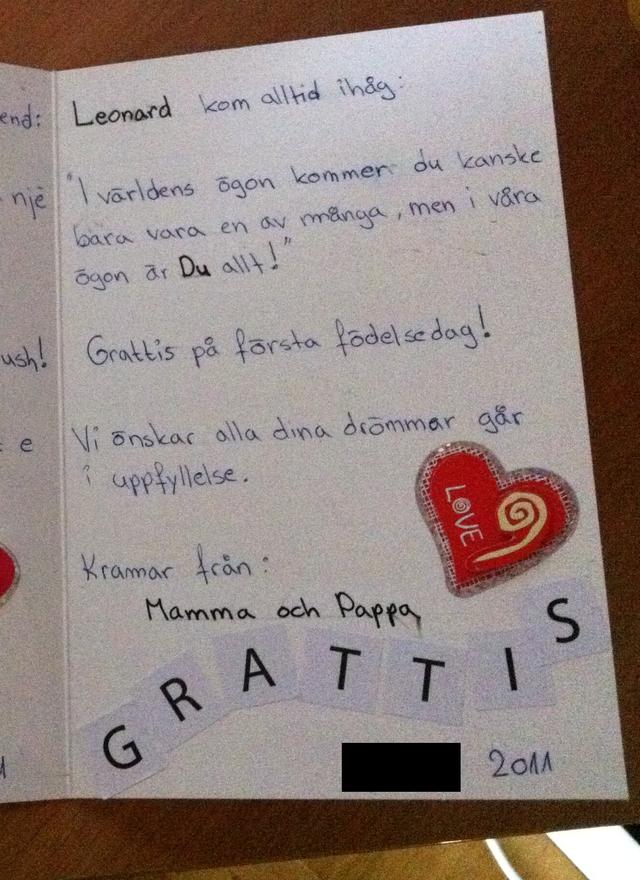 end:
një
ush!
e
Leonard kom alltid ihåg:
"I världens ögon kommer du kanske
bara vara en av många, men i våra
ögon är Du allt!"
Grattis på första födelsedag!
Vi önskar alla dina drömmar går
i uppfyllelse.
LOVE
Kramar från:
Mamma och Pappa
GRATTIS
2011